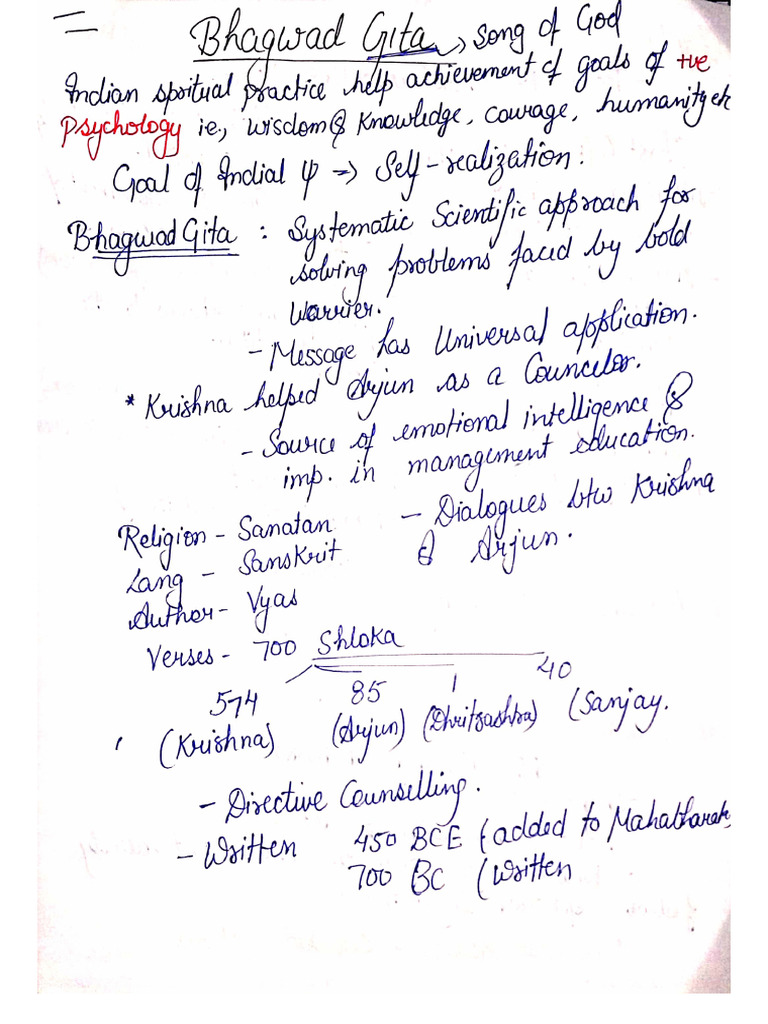 Bhagwad Gita → Song of God
Indian spritual practice help achievement of goals of +ve
Psychology ie., wisdom & Knowledge, courage, humanity etc
Goal of Indial ψ → Self-realization.
Bhagwad Gita : Systematic Scientific approach for
solving problems faced by bold
Warrier.
- Message has Universal application.
* Krishna helped Arjun as a Councelor.
- Source of emotional intelligence &
imp. in management education.
Religion - Sanatan - Dialogues btw Krishna
& Arjun.
Lang - Sanskrit
Author - Vyas
Verses - 700 Shloka
574 85 1 40
(Krishna) (Arjun) (Dhritrashtra) (Sanjay.
- Directive Counselling.
- Written 450 BCE (added to Mahabharat
700 BC (Written